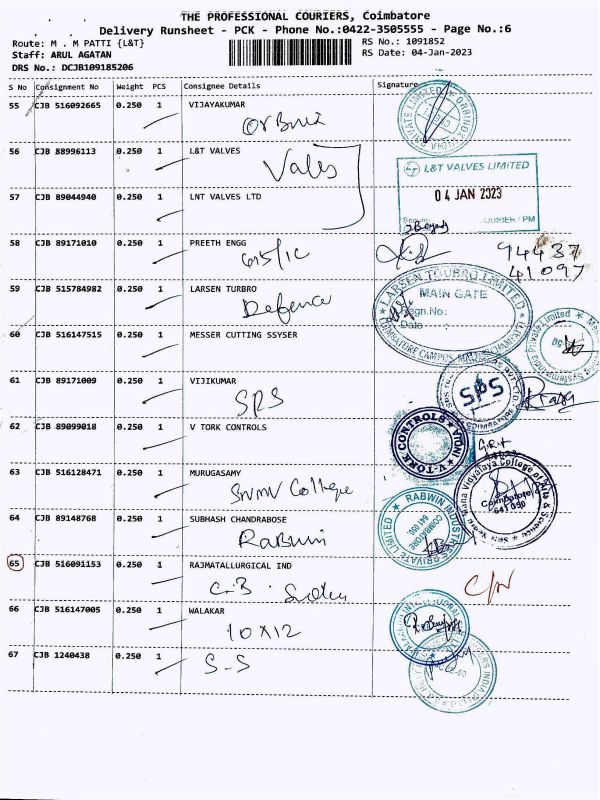 THE PROFESSIONAL COURIERS, Coimbatore
Delivery Runsheet - PCK - Phone No.:0422-3505555 - Page No.:6
Route: M . M PATTI {L&T}
RS No.: 1091852
Staff: ARUL AGATAN
RS Date: 04-Jan-2023
DRS No.: DCJB109185206
S No Consignment No Weight PCS Consignee Details Signature
55 CJB 516092665 0.250 1 VIJAYAKUMAR
56 CJB 88996113 0.250 1 L&T VALVES
L&T VALVES LIMITED
04 JAN 2023
57 CJB 89044940 0.250 1 LNT VALVES LTD
58 CJB 89171010 0.250 1 PREETH ENGG
94437
41097
59 CJB 515784982 0.250 1 LARSEN TURBRO
Defence
LARSEN TOUBRO LIMITED
MAIN GATE
Sign.No:
Date :
60 CJB 516147515 0.250 1 MESSER CUTTING SSYSER
61 CJB 89171009 0.250 1 VIJIKUMAR
SPS
SPS
62 CJB 89099018 0.250 1 V TORK CONTROLS
V-TORK CONTROLS
63 CJB 516128471 0.250 1 MURUGASAMY
SNMV College
Coimbatore
641 050
64 CJB 89148768 0.250 1 SUBHASH CHANDRABOSE
Rabwin
RABWIN INDUSTRIES PRIVATE LIMITED
COIMBATORE
641 050.
65 CJB 516091153 0.250 1 RAJMATALLURGICAL IND
66 CJB 516147005 0.250 1 WALAKAR
10x12
67 CJB 1240438 0.250 1
S-S